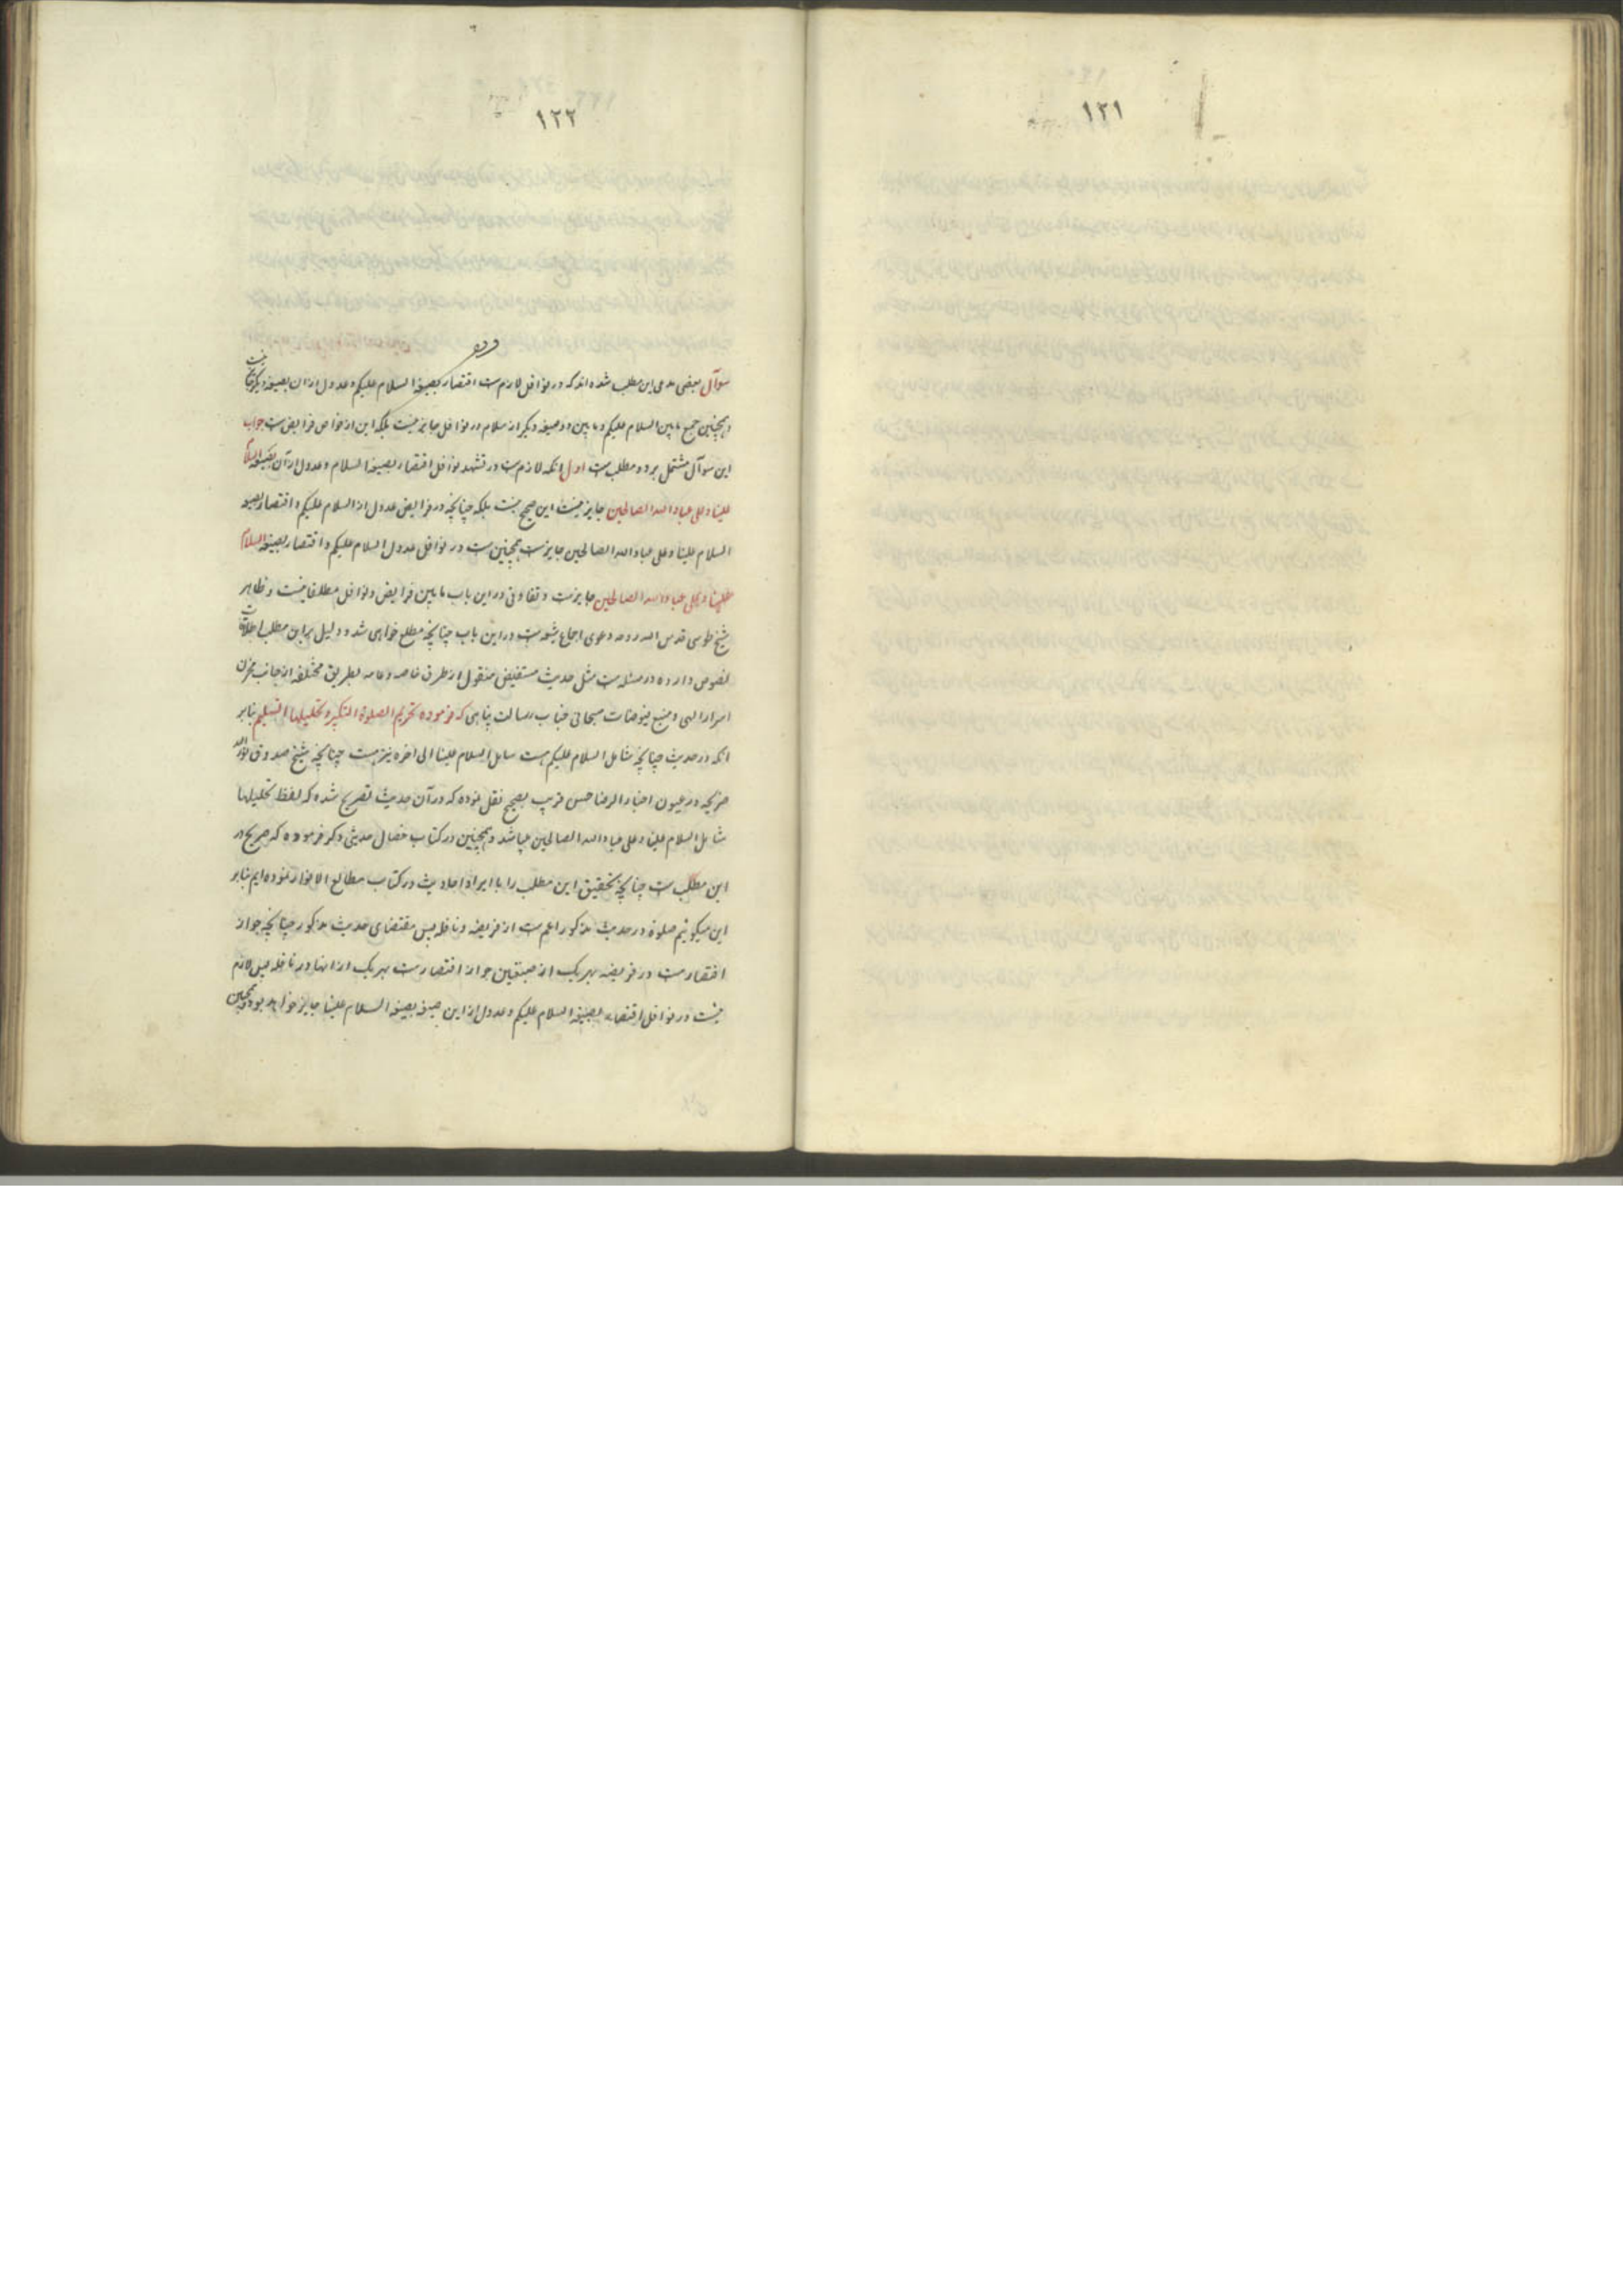 ۱۲۱
۱۲۲
سوآل بعضی مدعی این مطلب شده اند که در نوافل لازمست اقتصار بصیغه السلام علیکم و عدول ازان بصیغه دیگر جایز نیست
و همچنین جمع مابین السلام علیکم و مابین دو صیغه دیگر از سلام در نوافل جایز نیست بلکه این از خواص فرایض است جواب
این سوآل مشتمل بر دو مطلب است اول آنکه لازمست در تشهد نوافل اقتصار بصیغه السلام و عدول از آن بصیغه السلام
علینا و علی عباد الله الصالحین جایز نیست این صحیح نیست بلکه چنانچه در فرایض عدول از السلام علیکم و اقتصار بصیغه
السلام علینا و علی عباد الله الصالحین جایزست همچنین است در نوافل عدول السلام علیکم و اقتصار بصیغه السلام
علینا و علی عباد الله الصالحین جایزست و تفاوتی در این باب مابین فرایض و نوافل مطلقا نیست و ظاهر
شیخ طوسی قدس الله روحه دعوی اجماع شیعه است در این باب چنانچه مطلع خواهی شد و دلیل براین مطلب اطلاقات
نصوص وارده در مسئله است مثل حدیث مستفیض منقول از طرق خاصه و عامه بطریق مختلفه از جانب مخزن
اسرار الهی و منبع فیوضات سبحانی جناب رسالت پناهی که فرموده تحریم الصلوة التکبیر و تحلیلها التسلیم بنابر
انکه در حدیث چنانچه شامل السلام علیکم هست شامل السلام علینا الی اخره نیز هست چنانچه شیخ صدوق نور الله
ضریحه در عیون اخبار الرضا حسن قریب بصحیح نقل نموده که در آن حدیث تصریح شده که لفظ تحلیلها
شامل السلام علینا و علی عباد الله الصالحین میباشد و همچنین در کتاب خصال حدیثی ذکر فرموده که صریح در
این مطلب است چنانچه تحقیق این مطلب را با ایراد احادیث در کتاب مطالع الانوار نموده ایم بنابر
این میگوئیم صلوة در حدیث مذکور اعم است از فریضه و نافله پس مقتضای حدیث مذکور چنانچه جواز
اقتصار است در فریضه بهریک از صیغتین جواز اقتصار است بهریک از انها در نافله پس لازم
نیست در نوافل اقتصار بصیغه السلام علیکم و عدول از این صیغه بصیغه السلام علینا جایز خواهد بود و همچنین